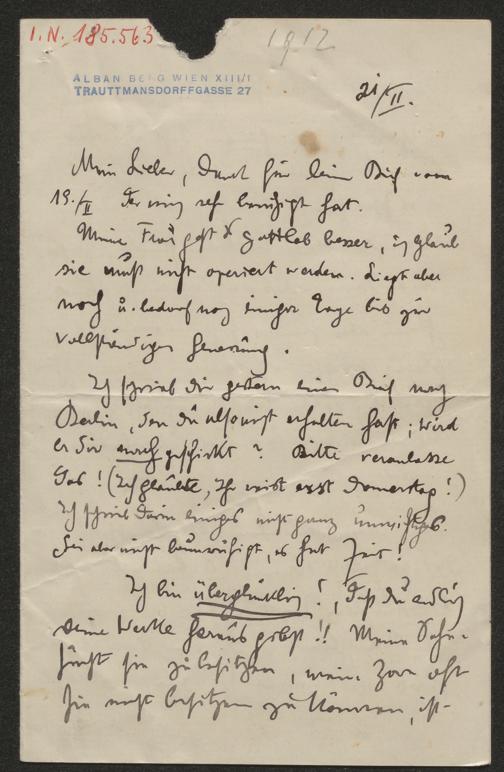 I.N. 185.563
1912
ALBAN BERG WIEN XIII/1
TRAUTTMANSDORFFGASSE 27
21/II.
Mein Lieber, Dank für Dein Brief vom
19./II der mich sehr beruhigt hat.
Meiner Frau geht's gottlob besser, ich glaub
sie muß nicht operiert werden. Liegt aber
noch u. bedarf noch einiger Tage bis zur
vollständigen Genesung.
Ich schrieb dir gestern einen Brief nach
Berlin, den du also nicht erhalten hast; wird
er Dir nachgeschickt? Bitte veranlasse
das! (Ich glaubte, Ihr reist erst Donnerstag!)
Ich schrieb darin einiges nicht ganz unwichtiges.
Sei aber nicht beunruhigt, es hat Zeit!
Ich bin überglücklich!, daß du endlich
deine Werke herausgibst!! Meine Sehn-
sucht sie zu besitzen, mein Zorn oft
sie nicht besitzen zu können, ist